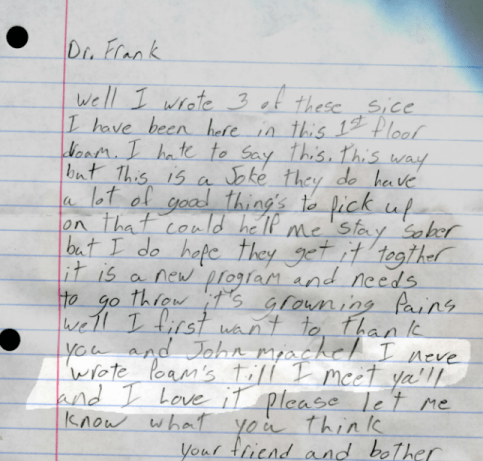 Dr. Frank
Well I wrote 3 of these sice
I have been here in this 1st floor
doam. I hate to say this. this way
but this is a Joke they do have
a lot of good thing's to pick up
on that could help me stay sober
but I do hope they get it togther
it is a new program and needs
to go throw it's growning Pains
well I first want to thank
you and John I neve
wrote Poam's till I meet ya'll
and I Love it please let me
know what you think
your friend and bother